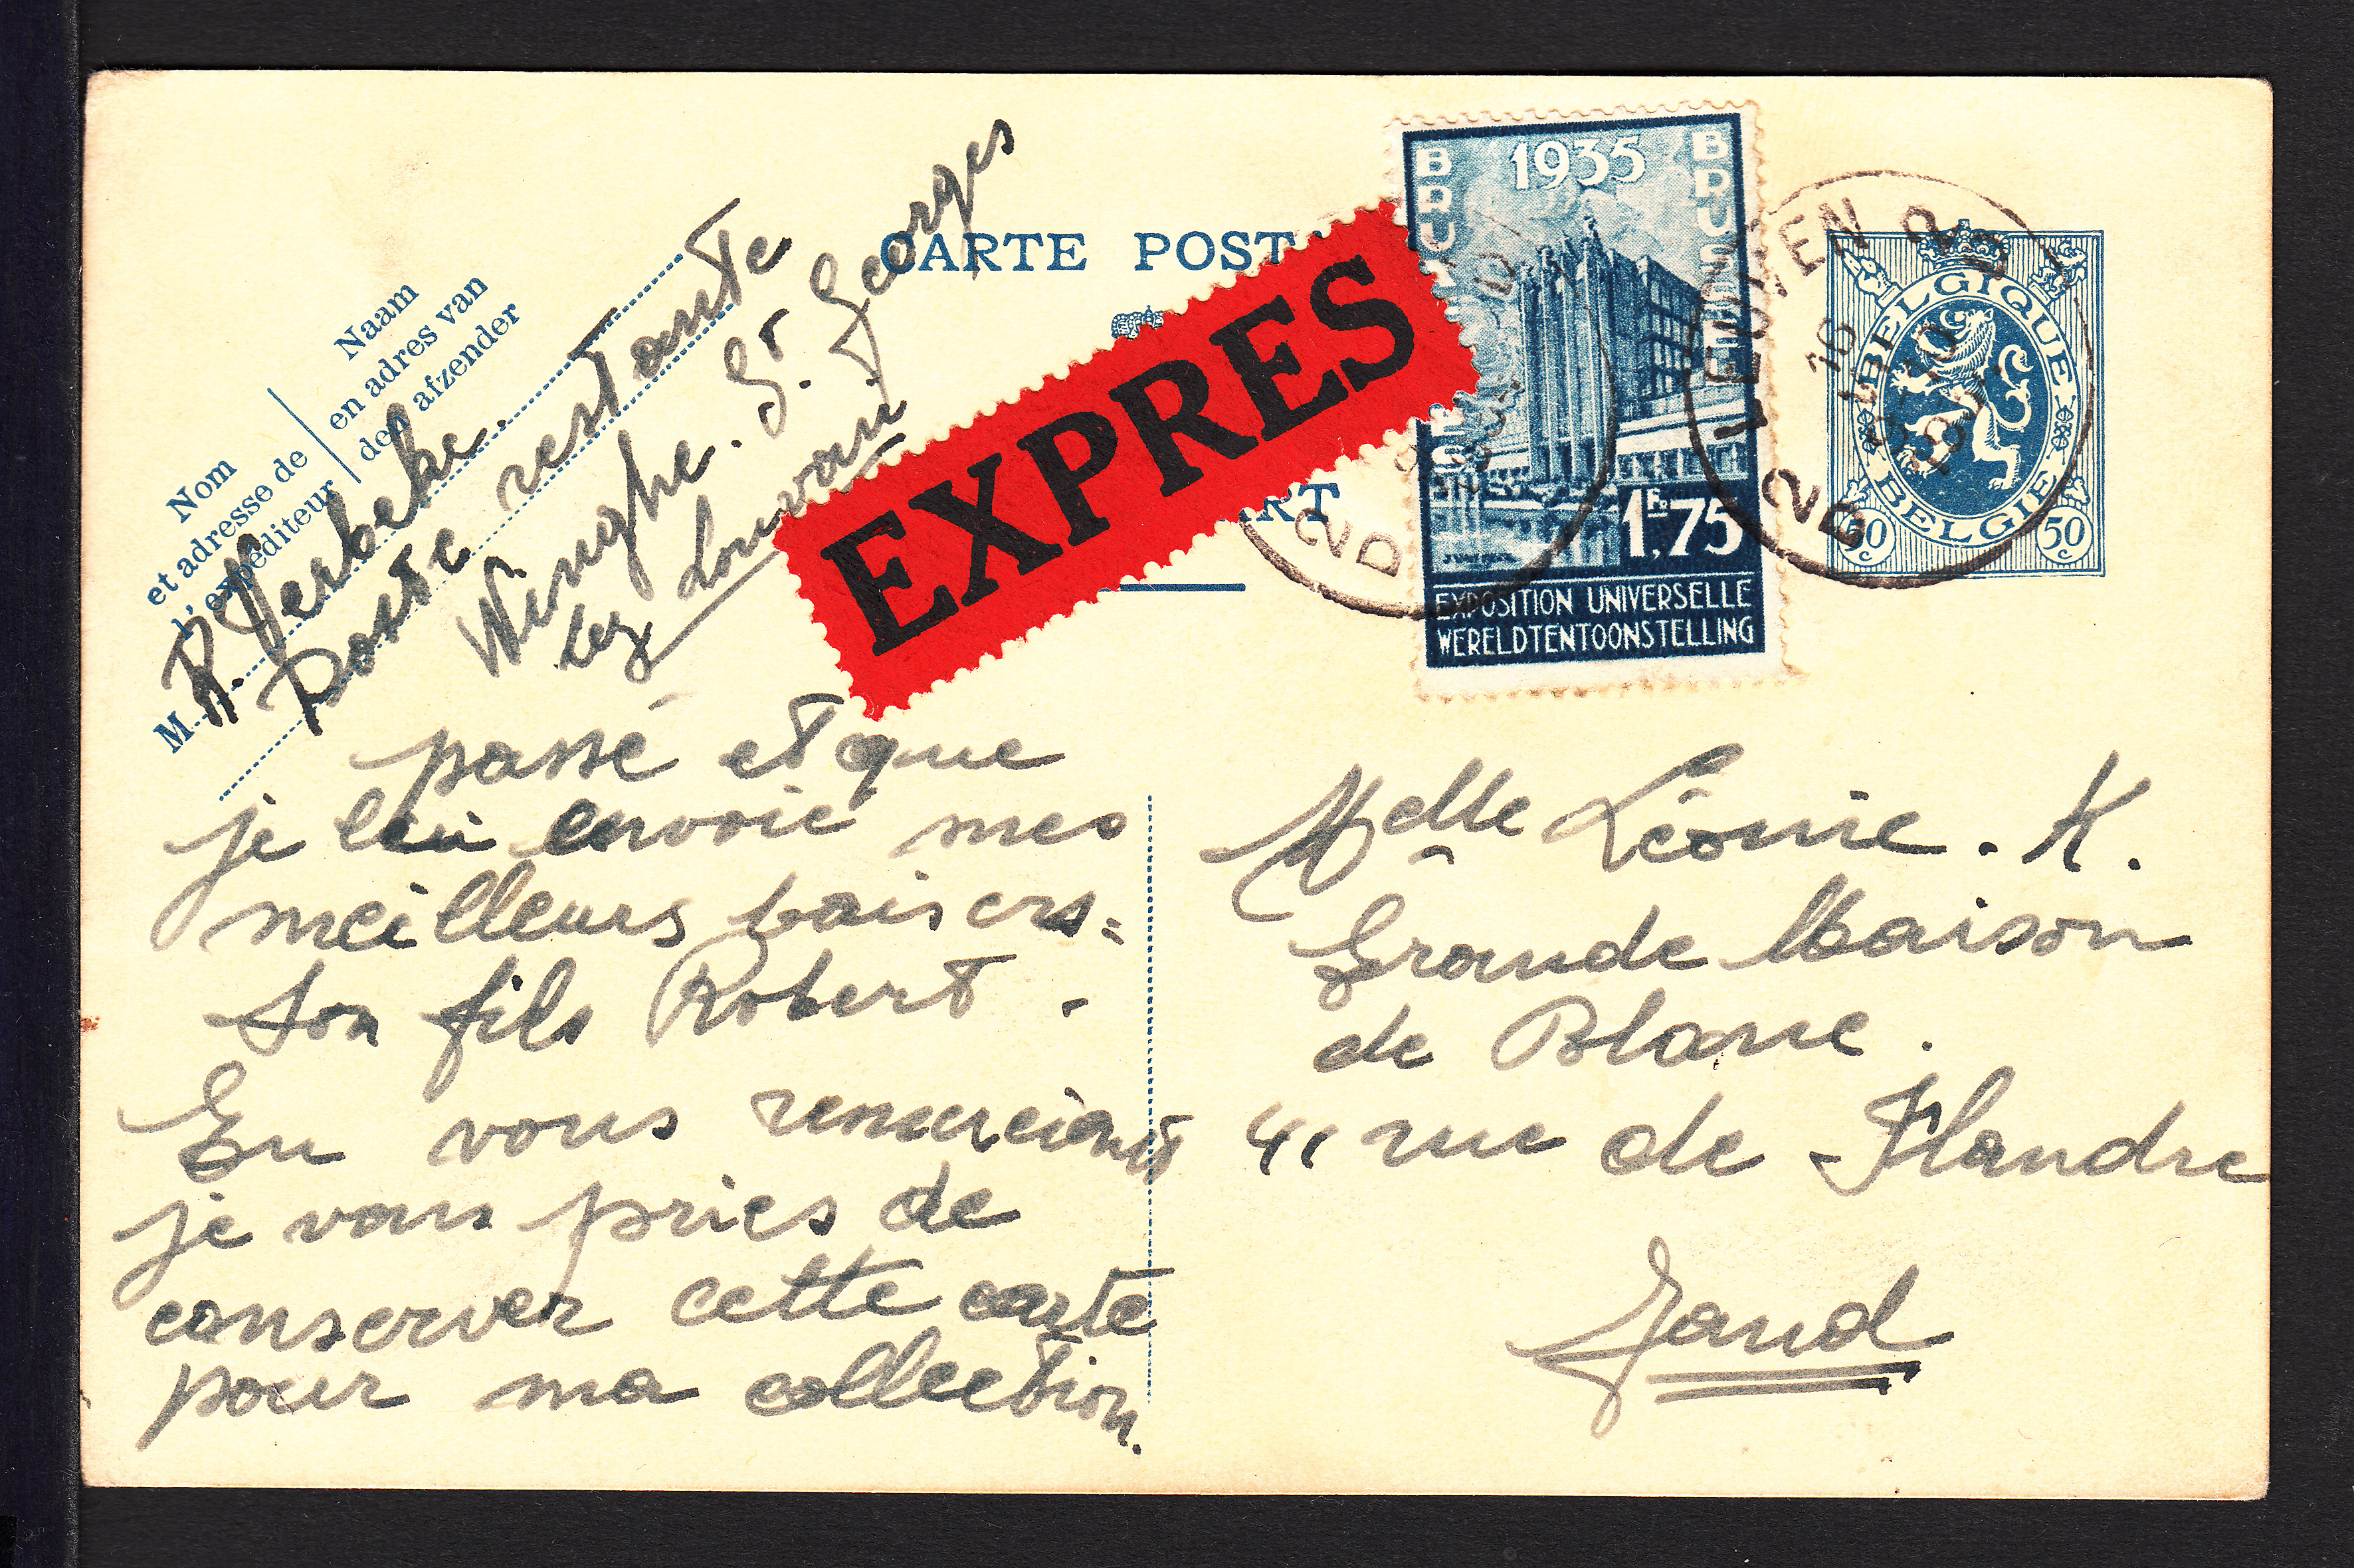 CARTE POST
ART
EXPRES
1935
BRUSSEL
1Fr.75
EXPOSITION UNIVERSELLE
WERELDTENTOONSTELLING
LEUVEN 2
2D
2D
BELGIQUE
BELGIE
50c
50c
Nom
et adresse de
l'expéditeur
Naam
en adres van
den afzender
M. R. Verbeke.
Poste restante
Winghe. St. Georges
lez Louvain
passé et que
je lui envoie mes
meilleurs baisers.
Son fils Robert.
En vous remerciant
je vous pries de
conserver cette carte
pour ma collection.
Melle Léonie. K.
Grande Maison
de Blanc.
41 rue de Flandre
Gand